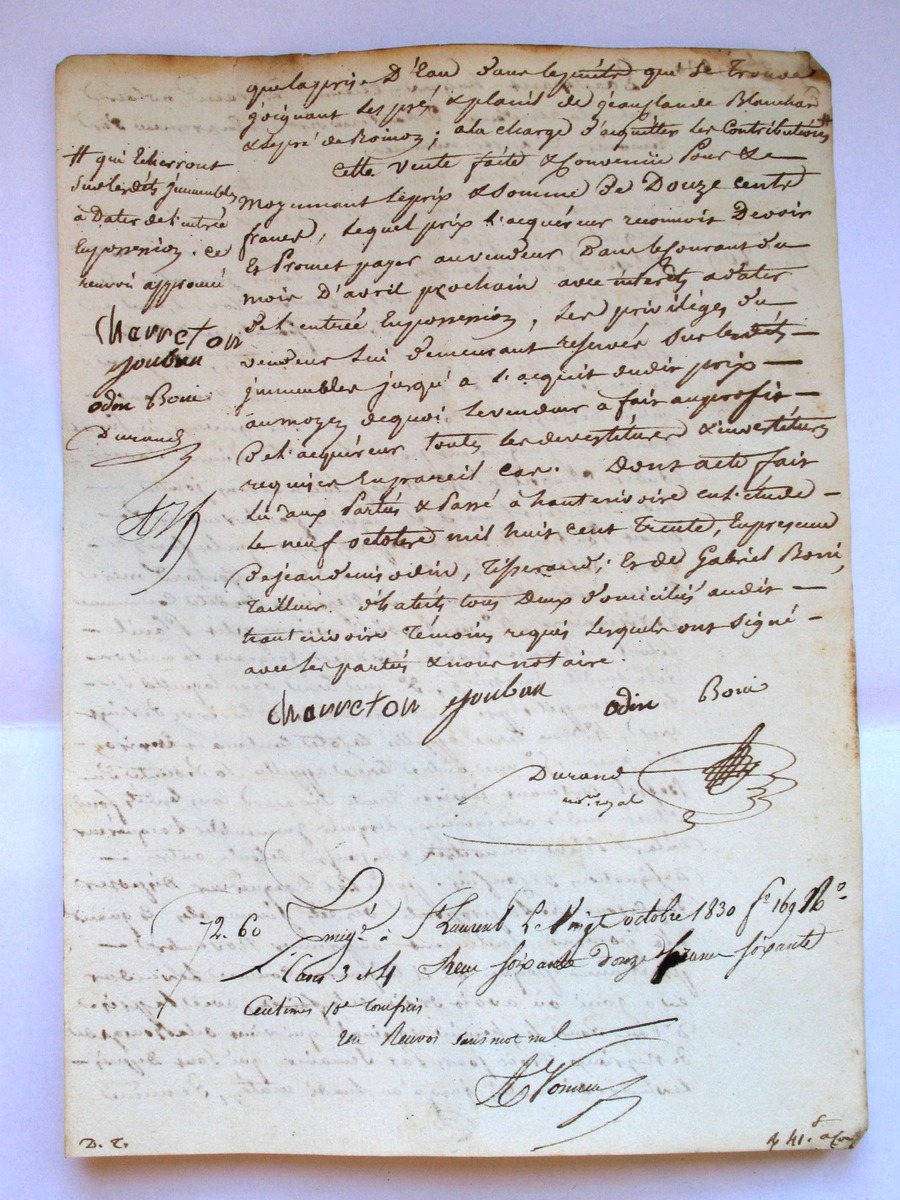 que la prise D'Eau dans le fuité qui se trouve
joignant les pré & planil de jean Claude Blanchard
& le pré de Roinon; a la charge d'acquitter les Contributions #
# qui Echerront
sur lesdits jmmeubles
à Dater de l'entrée
En possession. ce
renvoi approuvé
Charreton
jouban
odin Boni
Durand
Cette vente faite & Convenue Pour & e
moyennant le prix & Somme De Douze cents
francs, lequel prix l'acquéreur reconnoit Devoir
Et Promet payer au vendeur Dans le Courant du
mois D'avril prochain avec intérêts à dater
de l'entrée En possession, les privilèges du
vendeur lui demeurant réservés sur lesdits
jmmeubles jusqu'a l'acquit dudit prix
au moyen de quoi le vendeur a fait au profit
De l'acquéreur toutes les devestitures & investitures
requises En pareil cas. Dont acte fait
Lu aux Parties & Passé à hauterivoire en l'étude
Le neuf octobre mil huit cent Trente, En présence
De jean denis odin, Tisserand, Et de Gabriel Boni,
Tailleur d'habits tous Deux domiciliés audit
hauterivoire Témoins requis lesquels ont signé
avec les parties & nous notaire.
Charreton jouban odin Boni
Durand
nore royal
72. 60
Enregé à St Laurent Le Vingt octobre 1830 fo 169 Ro
Cases 3 et 4 Reçu soixante douze francs soixante
Centimes 10e Compris
un Renvoi sans mot nul
D. T.